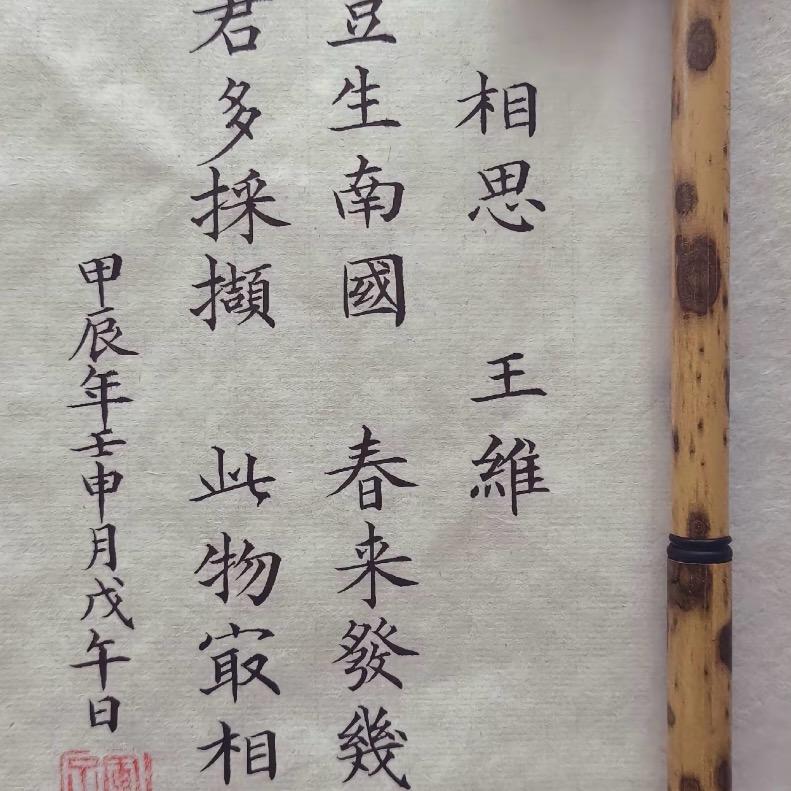 相思 王維
豆生南國 春来發幾
君多採擷 此物㝡相
甲辰年壬申月戊午日